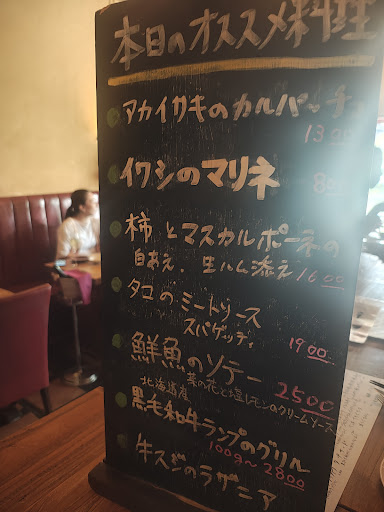 本日のオススメ料理
アカイサキのカルパッチ
1300
イワシのマリネ
80
柿とマスカルポーネの
白あえ、生ハム添え 1600
タコのミートソース
スパゲッティ
1900
鮮魚のソテー
菜の花と塩レモンのクリームソース
2500
北海道産
黒毛和牛ランプのグリル
100g〜2800
牛スジのラザニア